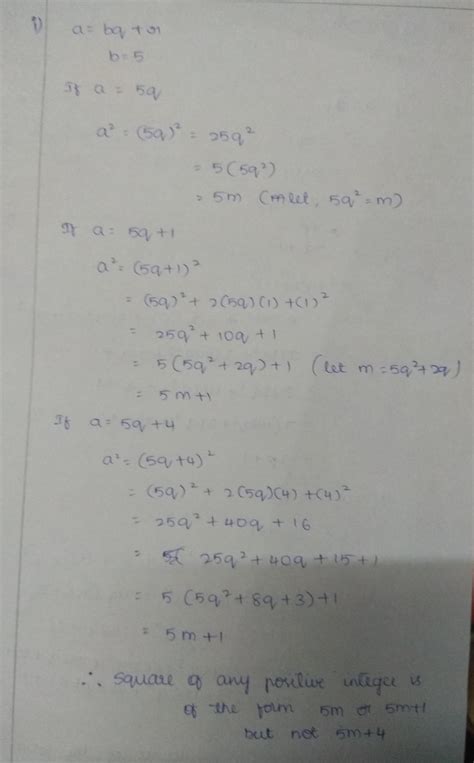 1) a = bq + r
b = 5
If a = 5q
a² = (5q)² = 25q²
= 5(5q²)
= 5m (let, 5q² = m)
If a = 5q+1
a² = (5q+1)²
= (5q)² + 2(5q)(1) + (1)²
= 25q² + 10q + 1
= 5(5q² + 2q) + 1 (let m = 5q² + 2q)
= 5m+1
If a = 5q+4
a² = (5q+4)²
= (5q)² + 2(5q)(4) + (4)²
= 25q² + 40q + 16
= 25q² + 40q + 15 + 1
= 5 (5q² + 8q + 3) + 1
= 5m+1
∴ square of any positive integer is
of the form 5m or 5m+1
but not 5m+4